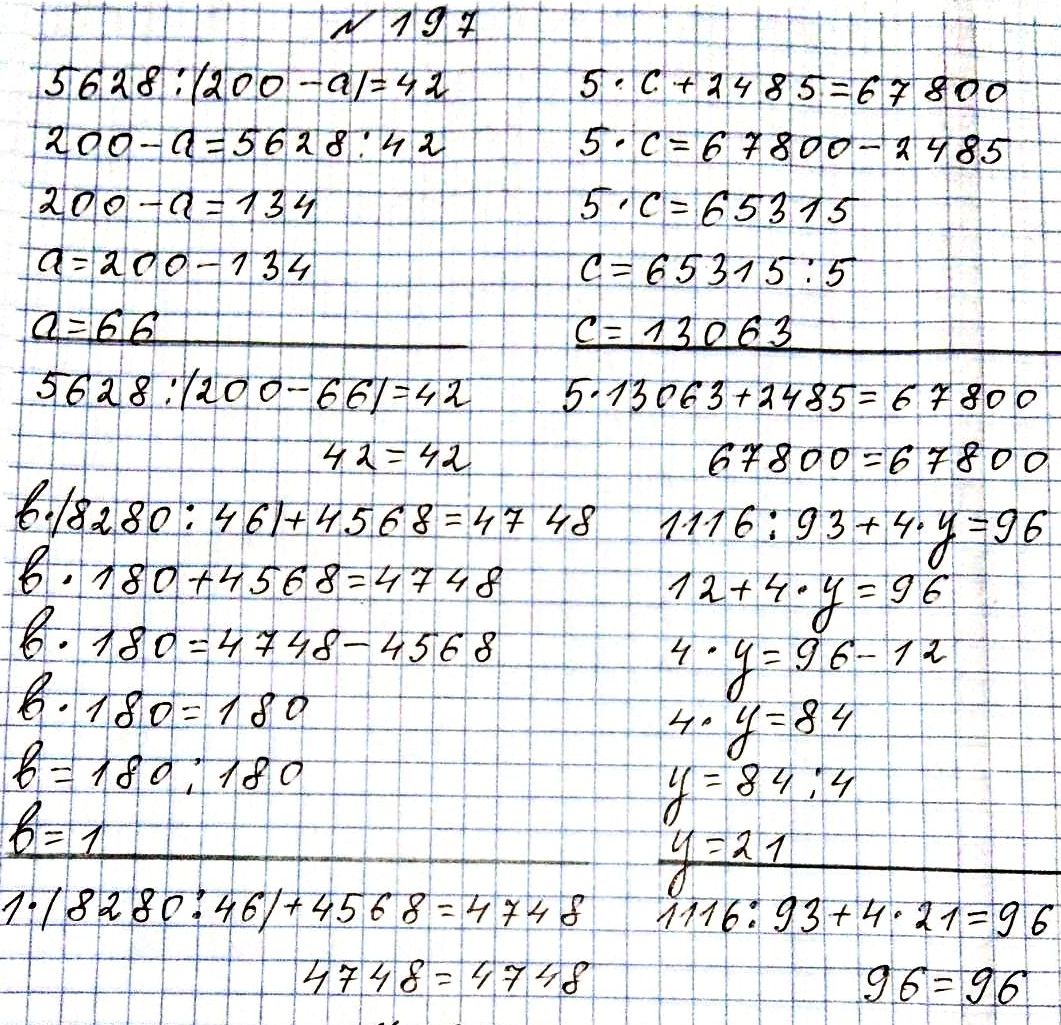 № 197
5628:(200-a)=42
200-a=5628:42
200-a=134
a=200-134
a=66
5628:(200-66)=42
42=42
5·c+2485=67800
5·c=67800-2485
5·c=65315
c=65315:5
c=13063
5·13063+2485=67800
67800=67800
в·(8280:46)+4568=4748
в·180+4568=4748
в·180=4748-4568
в·180=180
в=180:180
в=1
1·(8280:46)+4568=4748
4748=4748
1116:93+4·y=96
12+4·y=96
4·y=96-12
4·y=84
y=84:4
y=21
1116:93+4·21=96
96=96